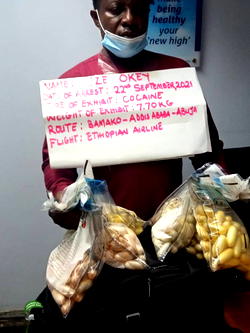 make
being
healthy
your
'new high'
NAME: EZE OKEY
DATE OF ARREST: 22ND SEPTEMBER, 2021
TYPE OF EXHIBIT: COCAINE
WEIGHT OF EXHIBIT: 7.70KG
ROUTE: BAMAKO-ADDIS ABABA-ABUJA
FLIGHT: ETHIOPIAN AIRLINE